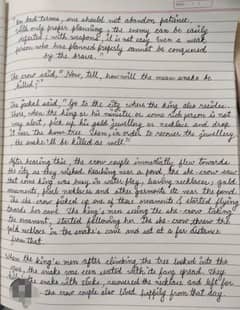 "In bad terms, one should not abandon patience.
With only proper planning, the enemy can be easily
defeated, with weapons it is not easy. Even a weak
person who has planned properly cannot be conquered
by the brave."
The crow said, "Now, tell, how will the mean snake be
killed?"
The jackal said, "Go to the city where the king also resides.
There, when the king or his minister or some rich person is not
very alert, pick up his gold jewellery or necklace and drop
it near the home tree. Then, in order to recover the jewellery,
the snake'll be killed as well."
After hearing this, the crow couple immediately flew towards
the city as they wished. Reaching near a pond, the she-crow saw
that some king was busy in water play, leaving necklaces, gold
ornaments, pearl necklaces and other garments etc near the pond.
The she crow picked up one of those ornaments & started flying
towards her own. The king's men seeing the she crow taking
the ornament, started following her. The she crow threw the
gold necklace in the snake's cave and sat at a far distance
from that.
When the king's men after climbing the tree looked into the
cave, the snake was seen seated with its fang spread. They
the snake with sticks, recovered the necklace and left for
the crow couple also lived happily from that day.